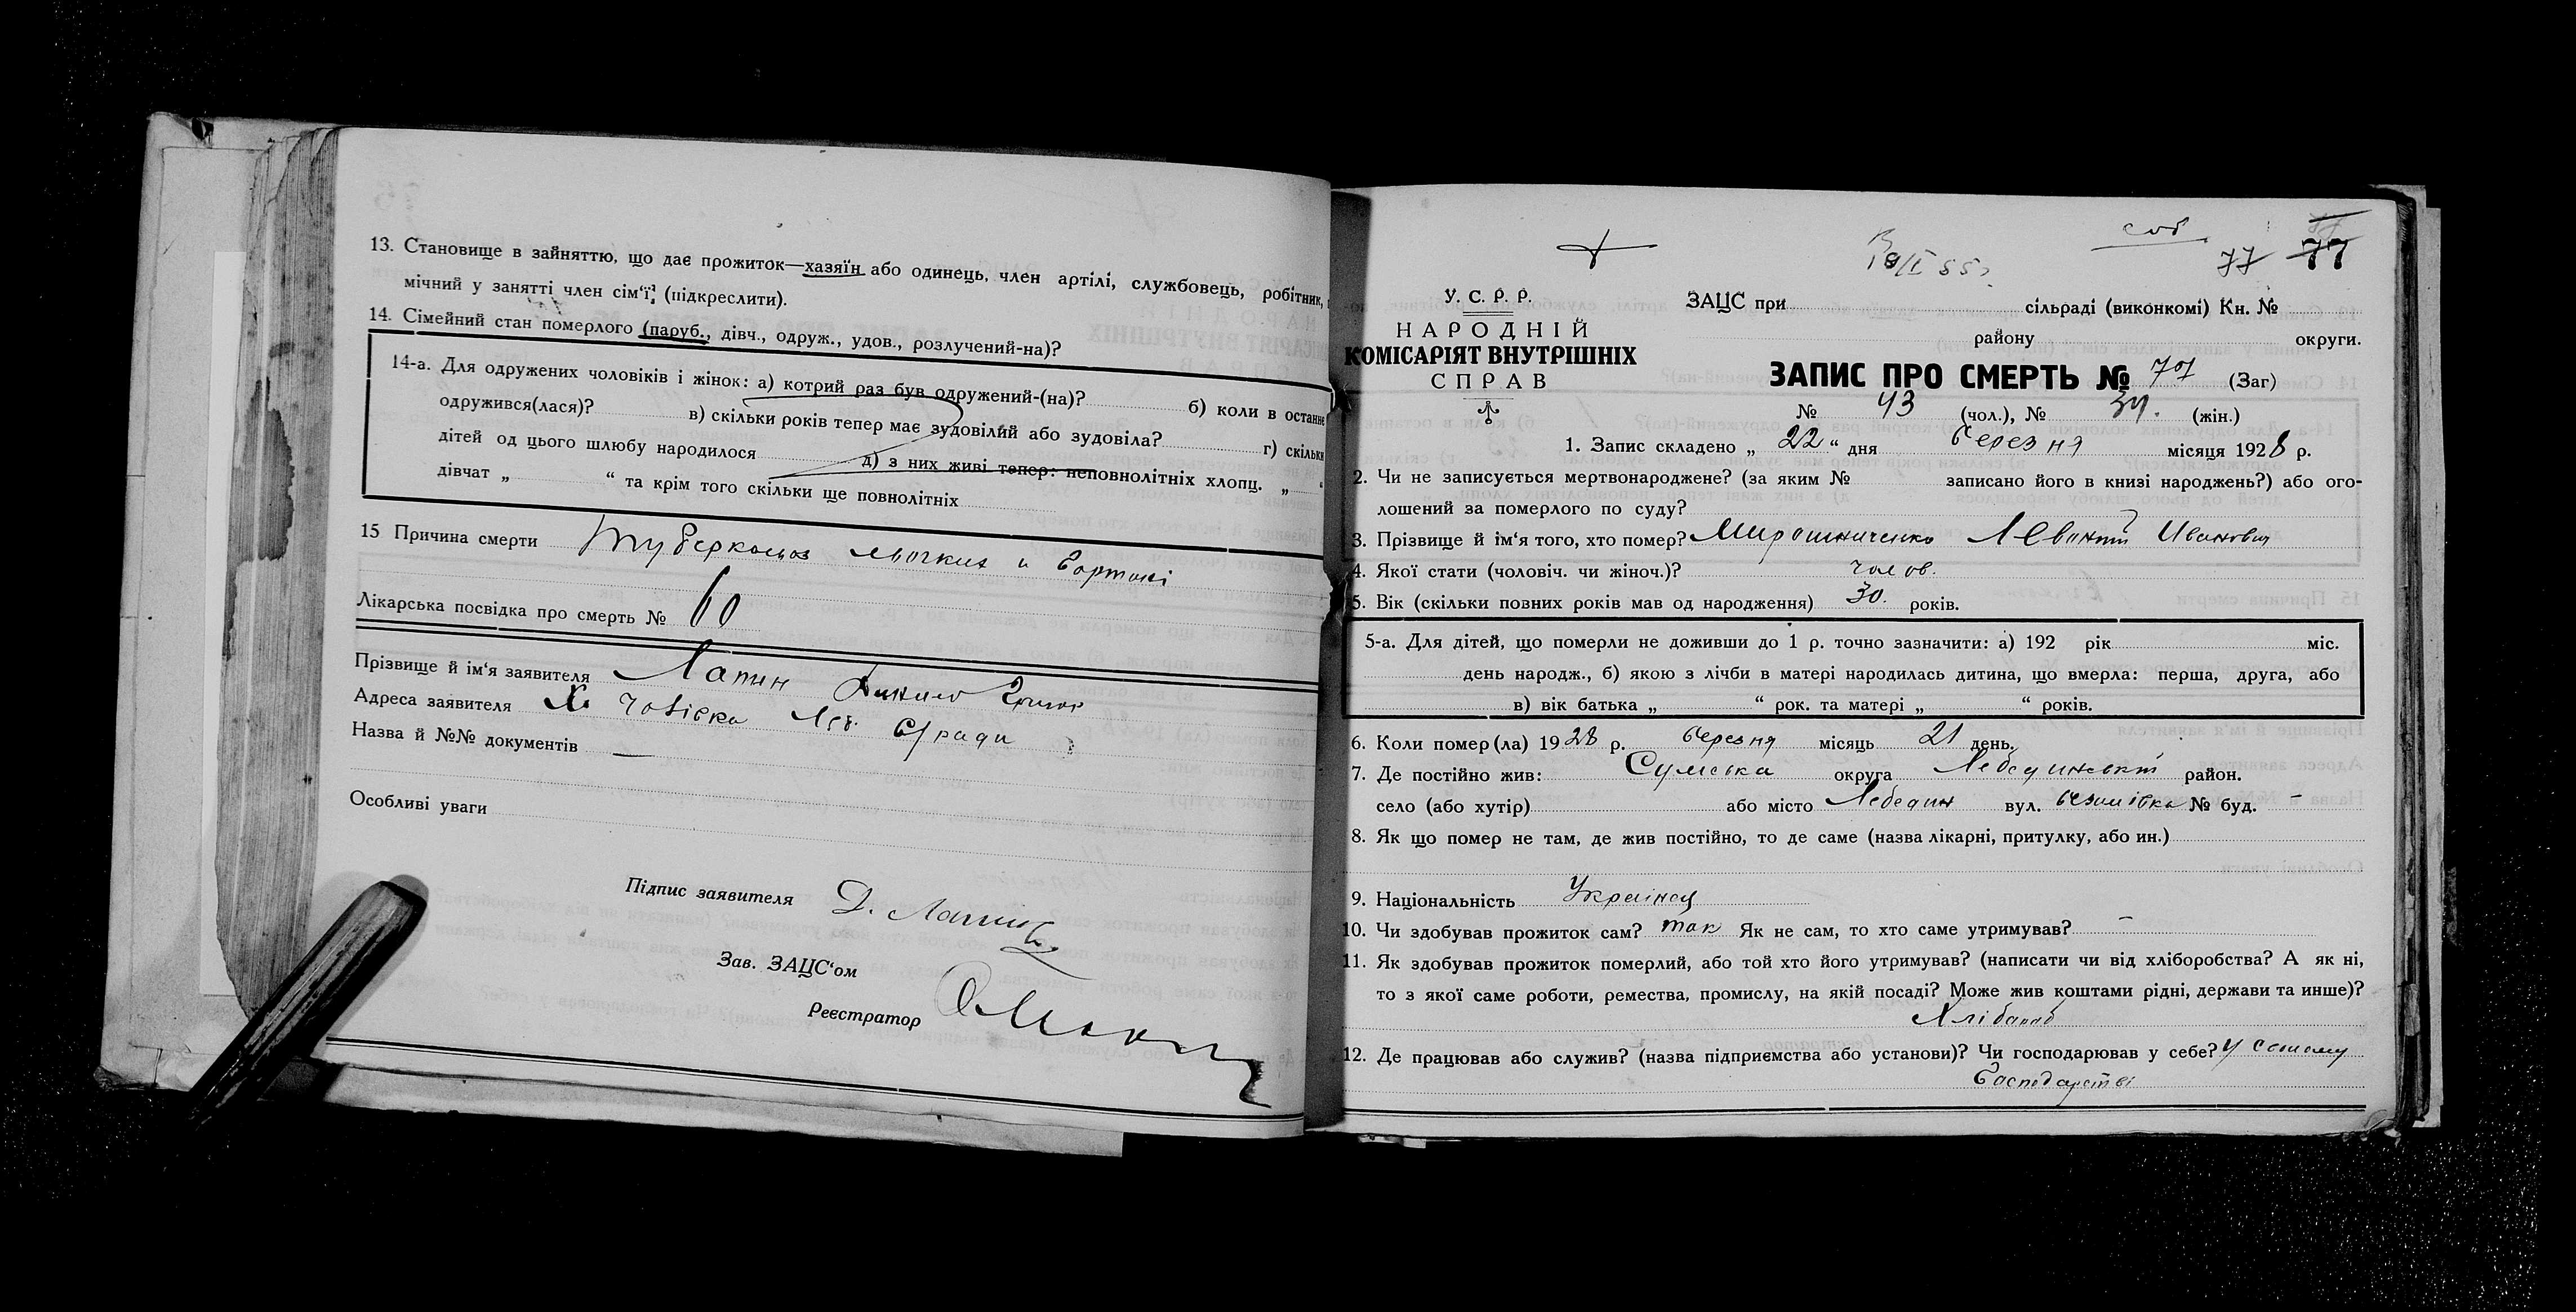 13. Становище в зайняттю, що дає прожиток—хазяїн або одинець, член артілі, службовець, робітник,
мічний у занятті член сім‘ї, (підкреслити).
14. Сімейний стан померлого (паруб., дівч., одруж., удов., розлучений-на)?
14-а. Для одружених чоловіків і жінок: а) котрий раз був одружений-(на)? б) коли в останнє
одружився(лася)? в) скільки років тепер має зудовілий або зудовіла? г) скільки
дітей од цього шлюбу народилося д) з них живі тепер: неповнолітніх хлопц. „ “
дівчат „ “ та крім того скільки ще повнолітніх
15 Причина смерти Туберкольоз и
Лікарська посвідка про смерть № 60
Прізвище й ім‘я заявителя Лапин
Адреса заявителя Х. Леб. с/ради
Назва й №№ документів —
Особливі уваги
Підпис заявителя Д. Лапин
Зав. ЗАЦС‘ом
Реєстратор
соб
77 77
У. С. Р. Р.
НАРОДНІЙ
КОМІСАРІЯТ ВНУТРІШНІХ
СПРАВ
ЗАЦС при сільраді (виконкомі) Кн. №
району округи.
ЗАПИС ПРО СМЕРТЬ № (Заг)
№ 43 (чол.), № 34. (жін.)
1. Запис складено „ 22 “ дня березня місяця 1928 р.
2. Чи не записується мертвонароджене? (за яким № записано його в книзі народжень?) або ого-
лошений за померлого по суду?
3. Прізвище й ім‘я того, хто помер? Мирошниченко Иванович
4. Якої стати (чоловіч. чи жіноч.)? чолов.
5. Вік (скільки повних років мав од народження) 30. років.
5-а. Для дітей, що померли не доживши до 1 р. точно зазначити: а) 192 рік міс.
день народж., б) якою з лічби в матері народилась дитина, що вмерла: перша, друга, або
в) вік батька „ “ рок. та матері „ “ років.
6. Коли помер(ла) 1928 р. березня місяць 21 день.
7. Де постійно жив: Сумська округа Лебединський район.
село (або хутір) або місто Лебедин вул. № буд. –
8. Як що помер не там, де жив постійно, то де саме (назва лікарні, притулку, або ин.)
9. Національність Українец
10. Чи здобував прожиток сам? так Як не сам, то хто саме утримував? –
11. Як здобував прожиток померлий, або той хто його утримував? (написати чи від хліборобства? А як ні,
то з якої саме роботи, ремества, промислу, на якій посаді? Може жив коштами рідні, держави та инше)?
12. Де працював або служив? (назва підприємства або установи)? Чи господарював у себе? у
господарстві